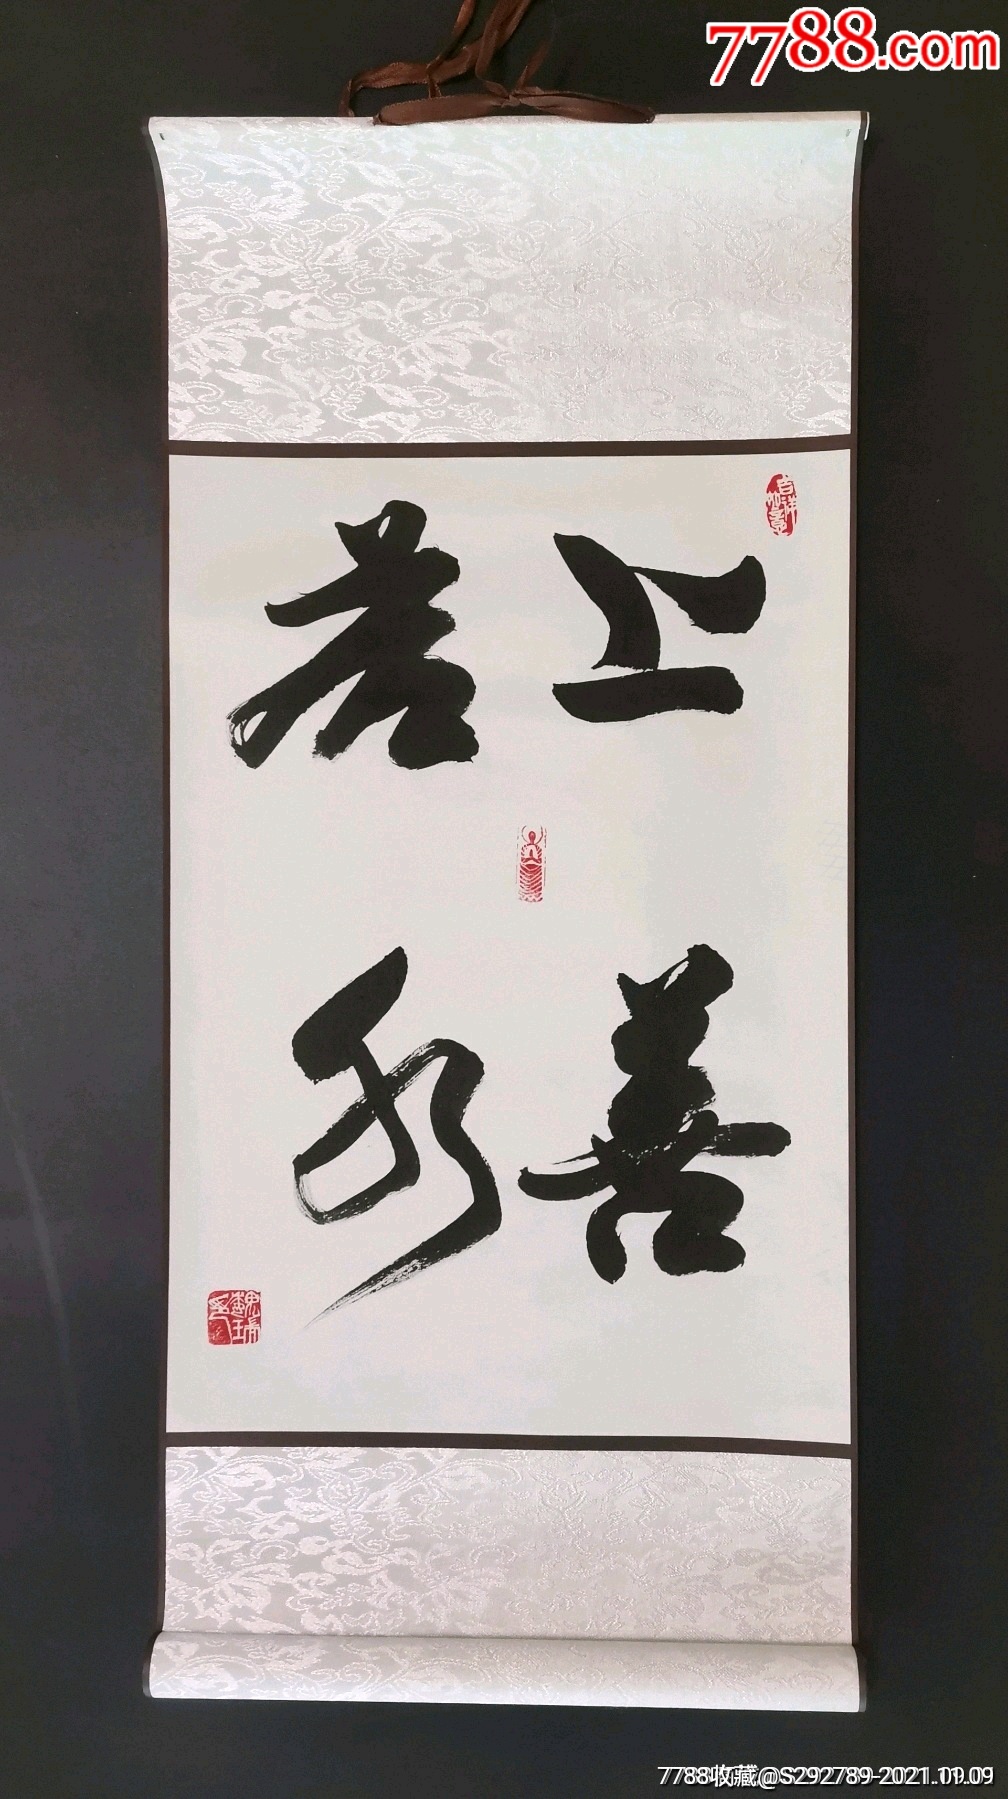 7788.com
上善
若水
吉祥如意
7788收藏@S292789-2021.09.09